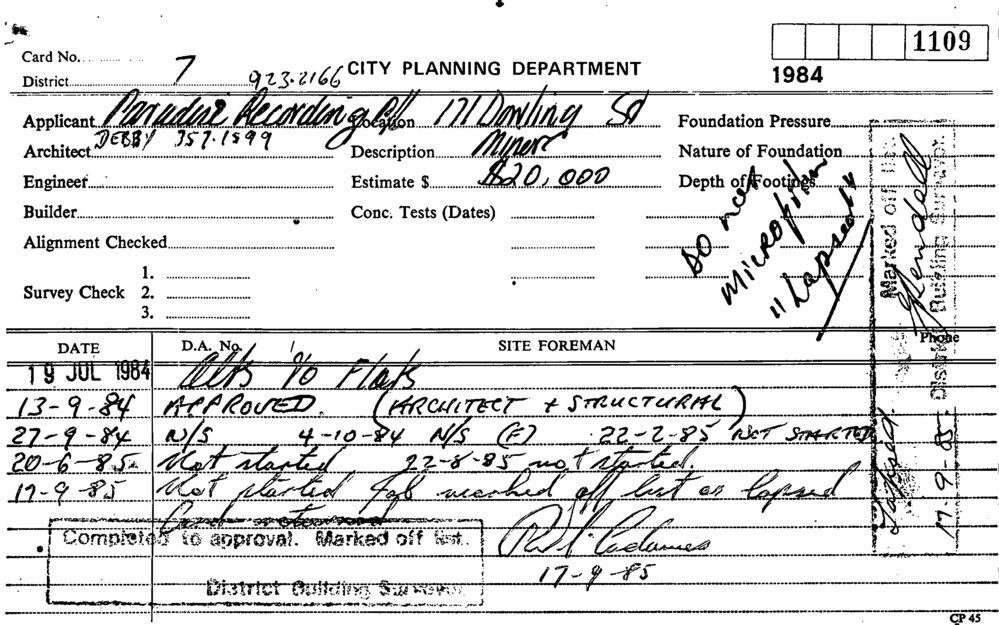 1109
Card No.
CITY PLANNING DEPARTMENT
1984
District 7 923.2166
Applicant Paradise Recording P/L Location 171 Dowling St Foundation Pressure
DEBBY 357.1599
Architect Description Minor Nature of Foundation
Engineer Estimate $ $20,000 Depth of Footings
Builder Conc. Tests (Dates)
Alignment Checked
1.
Survey Check 2.
3.
DO not
MICROfilm
"Lapsed"
Marked off list.
District Building Surveyor.
Lapsed
17-9-85
DATE D.A. No. SITE FOREMAN Phone
19 JUL 1984 Alts to Flats
13-9-84 APPROVED. (ARCHITECT + STRUCTURAL)
27-9-84 N/S 4-10-84 N/S (F) 22-2-85 NOT STARTED
20-6-85 Not started 22-8-85 not started.
17-9-85 Not started Job marked off list as lapsed
Completed to approval. Marked off list.
District Building Surveyor.
17-9-85
CP 45